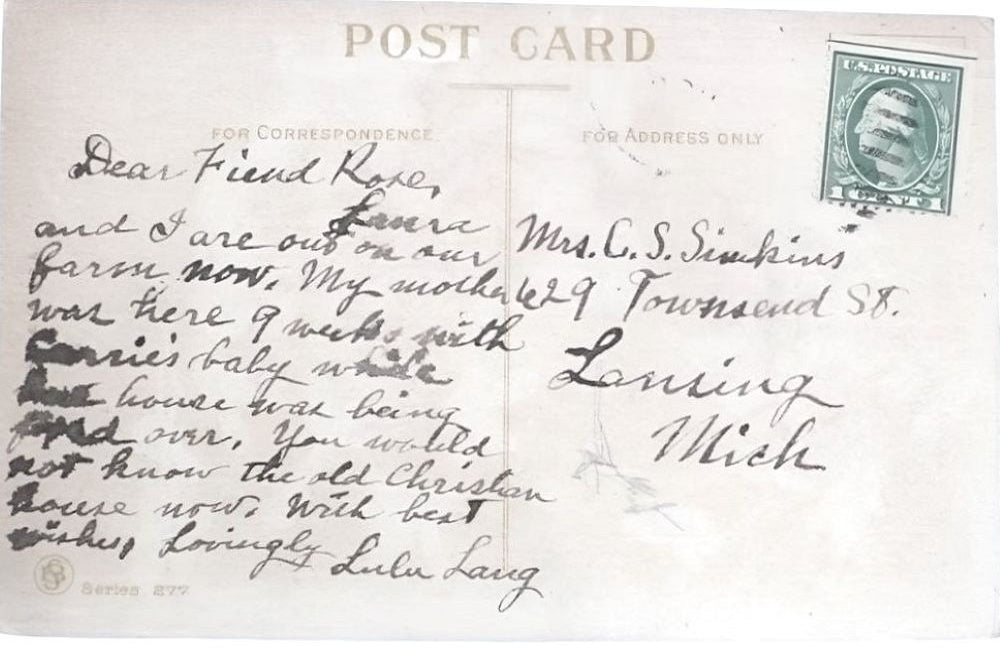 POST CARD
FOR CORRESPONDENCE
FOR ADDRESS ONLY
U.S. POSTAGE
1 CENT 1
Dear Fiend Rose,
Laura
and I are out on our
farm now. My mother
was here 9 weeks with
Carrie's baby while
house was being
over. You would
not know the old Christian
house now. With best
wishes, Lovingly
Lulu Lang
Mrs. C. S. Simkins
629 Townsend St.
Lansing
Mich
Series 277